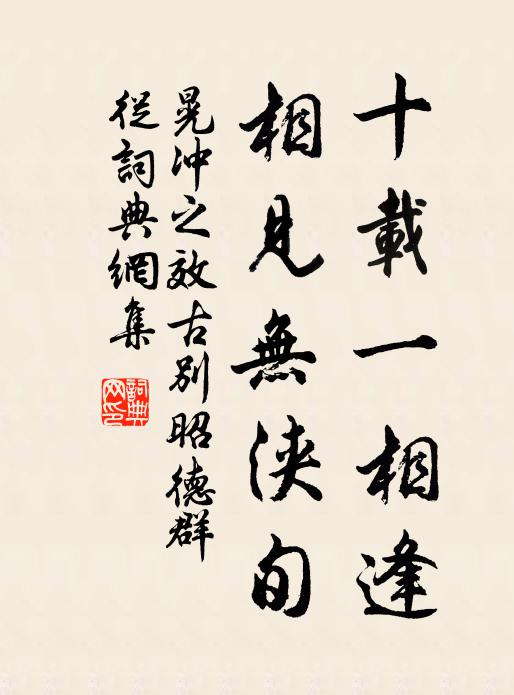 十載一相逢
相見無浹旬
晁沖之效古別昭德群
從詞典網集
詞典
网印